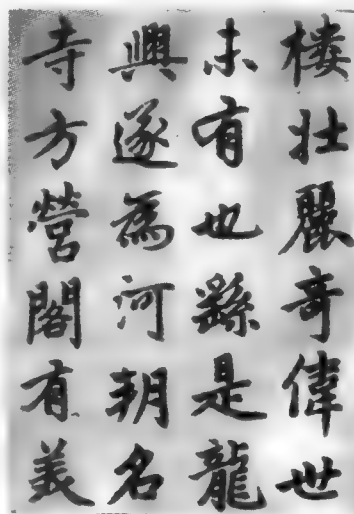 樓壯麗奇偉世
未有也繇是龍
興遂為河朔名
寺方營閣有美